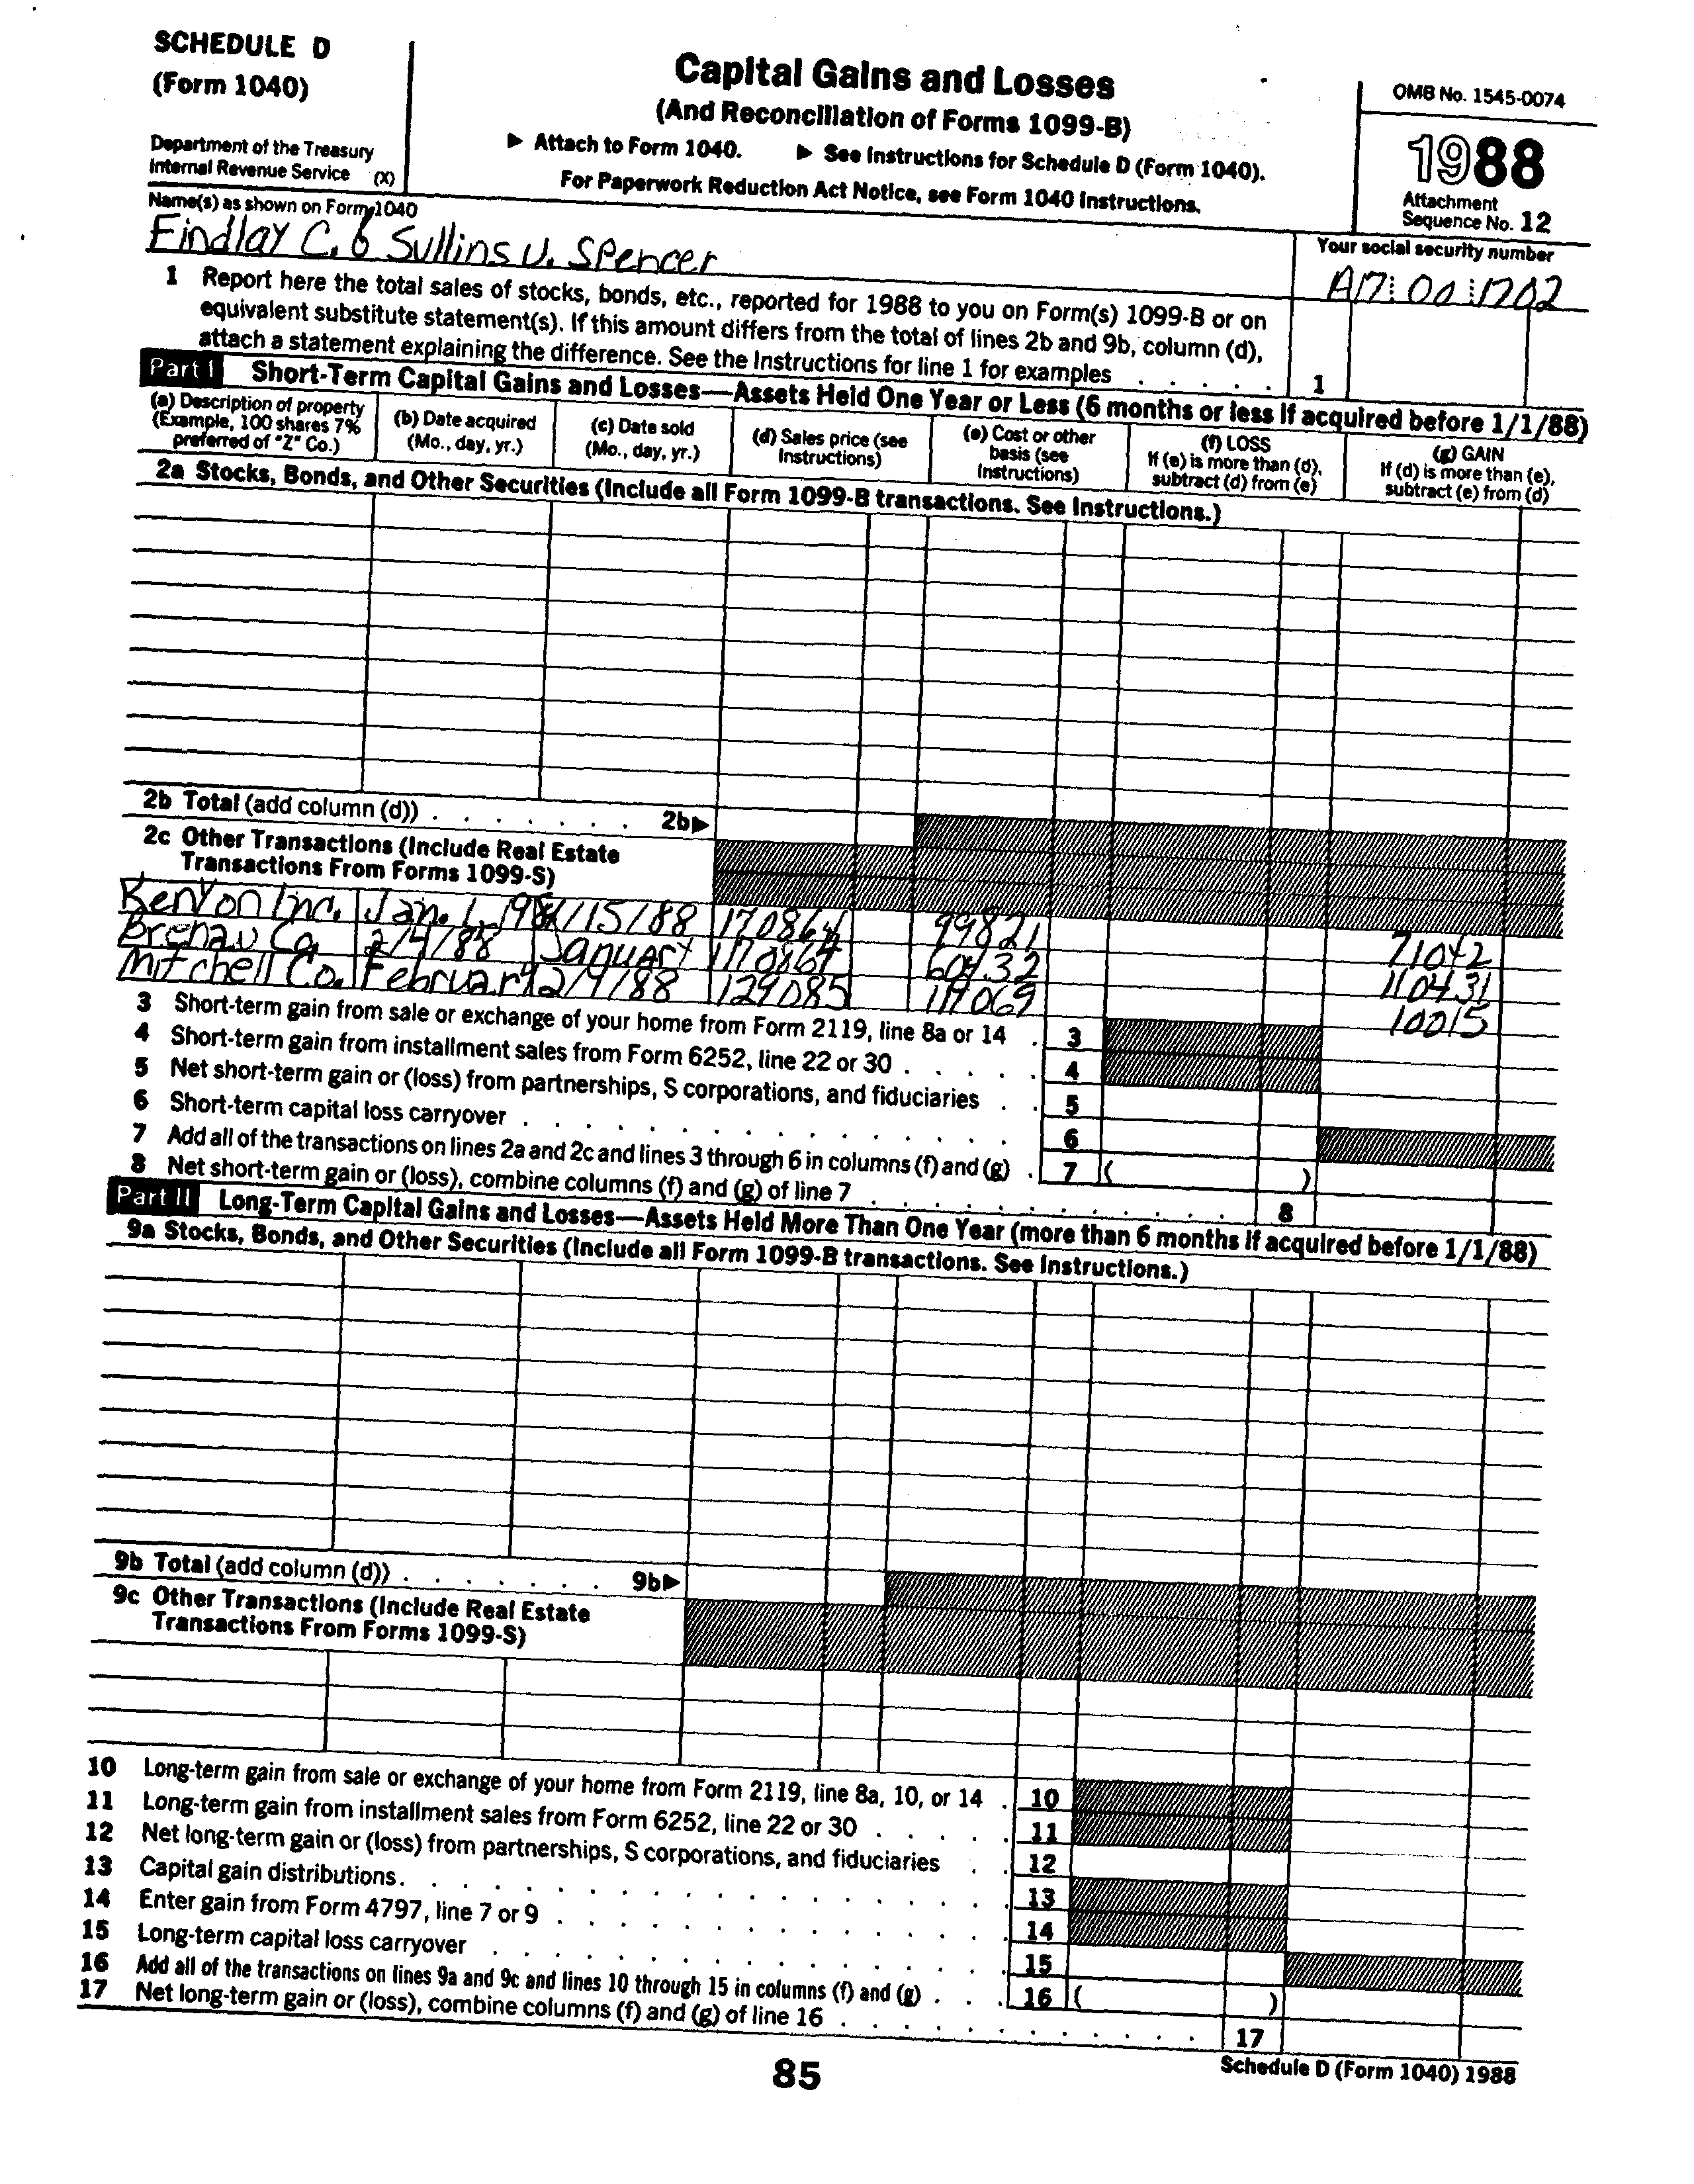 SCHEDULE D
(Form 1040)
Department of the Treasury
Internal Revenue Service (X)
Capital Gains and Losses
(And Reconciliation of Forms 1099-B)
▶ Attach to Form 1040. ▶ See Instructions for Schedule D (Form 1040).
For Paperwork Reduction Act Notice, see Form 1040 Instructions.
OMB No. 1545-0074
1988
Attachment
Sequence No. 12
Name(s) as shown on Form 1040
Findlay C. & Sullins V. Spencer
Your social security number
A17 00 1702
1 Report here the total sales of stocks, bonds, etc., reported for 1988 to you on Form(s) 1099-B or on
equivalent substitute statement(s). If this amount differs from the total of lines 2b and 9b, column (d),
attach a statement explaining the difference. See the Instructions for line 1 for examples . . . . . 1
Part I Short-Term Capital Gains and Losses—Assets Held One Year or Less (6 months or less if acquired before 1/1/88)
(a) Description of property
(Example, 100 shares 7%
preferred of "Z" Co.)
(b) Date acquired
(Mo., day, yr.)
(c) Date sold
(Mo., day, yr.)
(d) Sales price (see
Instructions)
(e) Cost or other
basis (see
Instructions)
(f) LOSS
If (e) is more than (d),
subtract (d) from (e)
(g) GAIN
If (d) is more than (e),
subtract (e) from (d)
2a Stocks, Bonds, and Other Securities (Include all Form 1099-B transactions. See Instructions.)
2b Total (add column (d)) . . . . . . . 2b▶
2c Other Transactions (Include Real Estate
Transactions From Forms 1099-S)
Kenyon Inc. Jan. 1, 198 1/15/88 170864 99821 71042
Brenau Co. 2/4/88 January 170864 60432 110431
Mitchell Co. February 2/9/88 129085 119069 10015
3 Short-term gain from sale or exchange of your home from Form 2119, line 8a or 14 . 3
4 Short-term gain from installment sales from Form 6252, line 22 or 30 . . . . . 4
5 Net short-term gain or (loss) from partnerships, S corporations, and fiduciaries . . 5
6 Short-term capital loss carryover . . . . . . . . . . . . . . . 6
7 Add all of the transactions on lines 2a and 2c and lines 3 through 6 in columns (f) and (g) . 7 ( )
8 Net short-term gain or (loss), combine columns (f) and (g) of line 7 . . . . . . . . . . . . 8
Part II Long-Term Capital Gains and Losses—Assets Held More Than One Year (more than 6 months if acquired before 1/1/88)
9a Stocks, Bonds, and Other Securities (Include all Form 1099-B transactions. See Instructions.)
9b Total (add column (d)) . . . . . . . 9b▶
9c Other Transactions (Include Real Estate
Transactions From Forms 1099-S)
10 Long-term gain from sale or exchange of your home from Form 2119, line 8a, 10, or 14 . 10
11 Long-term gain from installment sales from Form 6252, line 22 or 30 . . . . . 11
12 Net long-term gain or (loss) from partnerships, S corporations, and fiduciaries . . 12
13 Capital gain distributions . . . . . . . . . . . . . . . . . . . 13
14 Enter gain from Form 4797, line 7 or 9 . . . . . . . . . . . . . . 14
15 Long-term capital loss carryover . . . . . . . . . . . . . . . . 15
16 Add all of the transactions on lines 9a and 9c and lines 10 through 15 in columns (f) and (g) . . . 16 ( )
17 Net long-term gain or (loss), combine columns (f) and (g) of line 16 . . . . . . . . . . . . 17
85
Schedule D (Form 1040) 1988